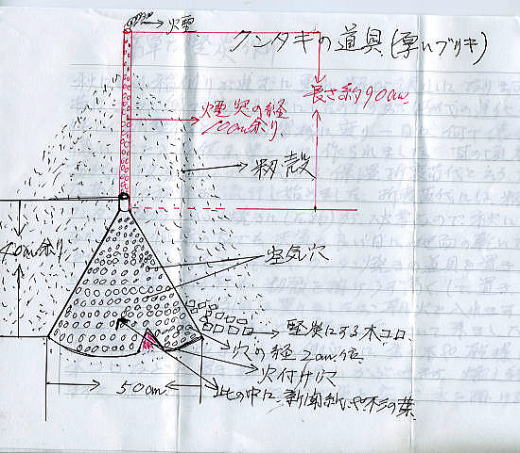 火煙
クンタキの道具(厚いブリキ)
長さ約90cm
煙突の経
10cm余り
籾殻
40cm余り
空気穴
堅炭にする木コロ
穴の経2cm位
火付け穴
50cm
此の中に新聞紙や杉の葉